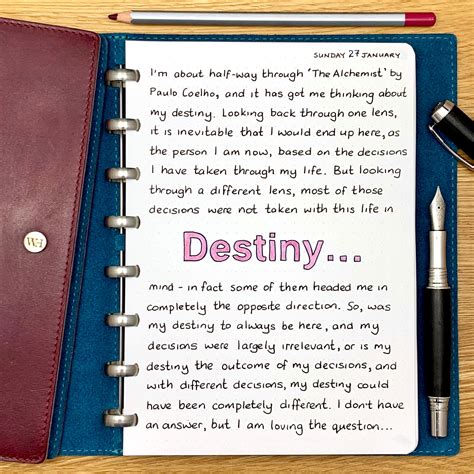 SUNDAY 27 JANUARY
I'm about half-way through 'The Alchemist' by
Paulo Coelho, and it has got me thinking about
my destiny. Looking back through one lens,
it is inevitable that I would end up here, as
the person I am now, based on the decisions
I have taken through my life. But looking
through a different lens, most of those
decisions were not taken with this life in
Destiny...
mind - in fact some of them headed me in
completely the opposite direction. So, was
my destiny to always be here, and my
decisions were largely irrelevant, or is my
destiny the outcome of my decisions, and
with different decisions, my destiny could
have been completely different. I don't have
an answer, but I am loving the question...